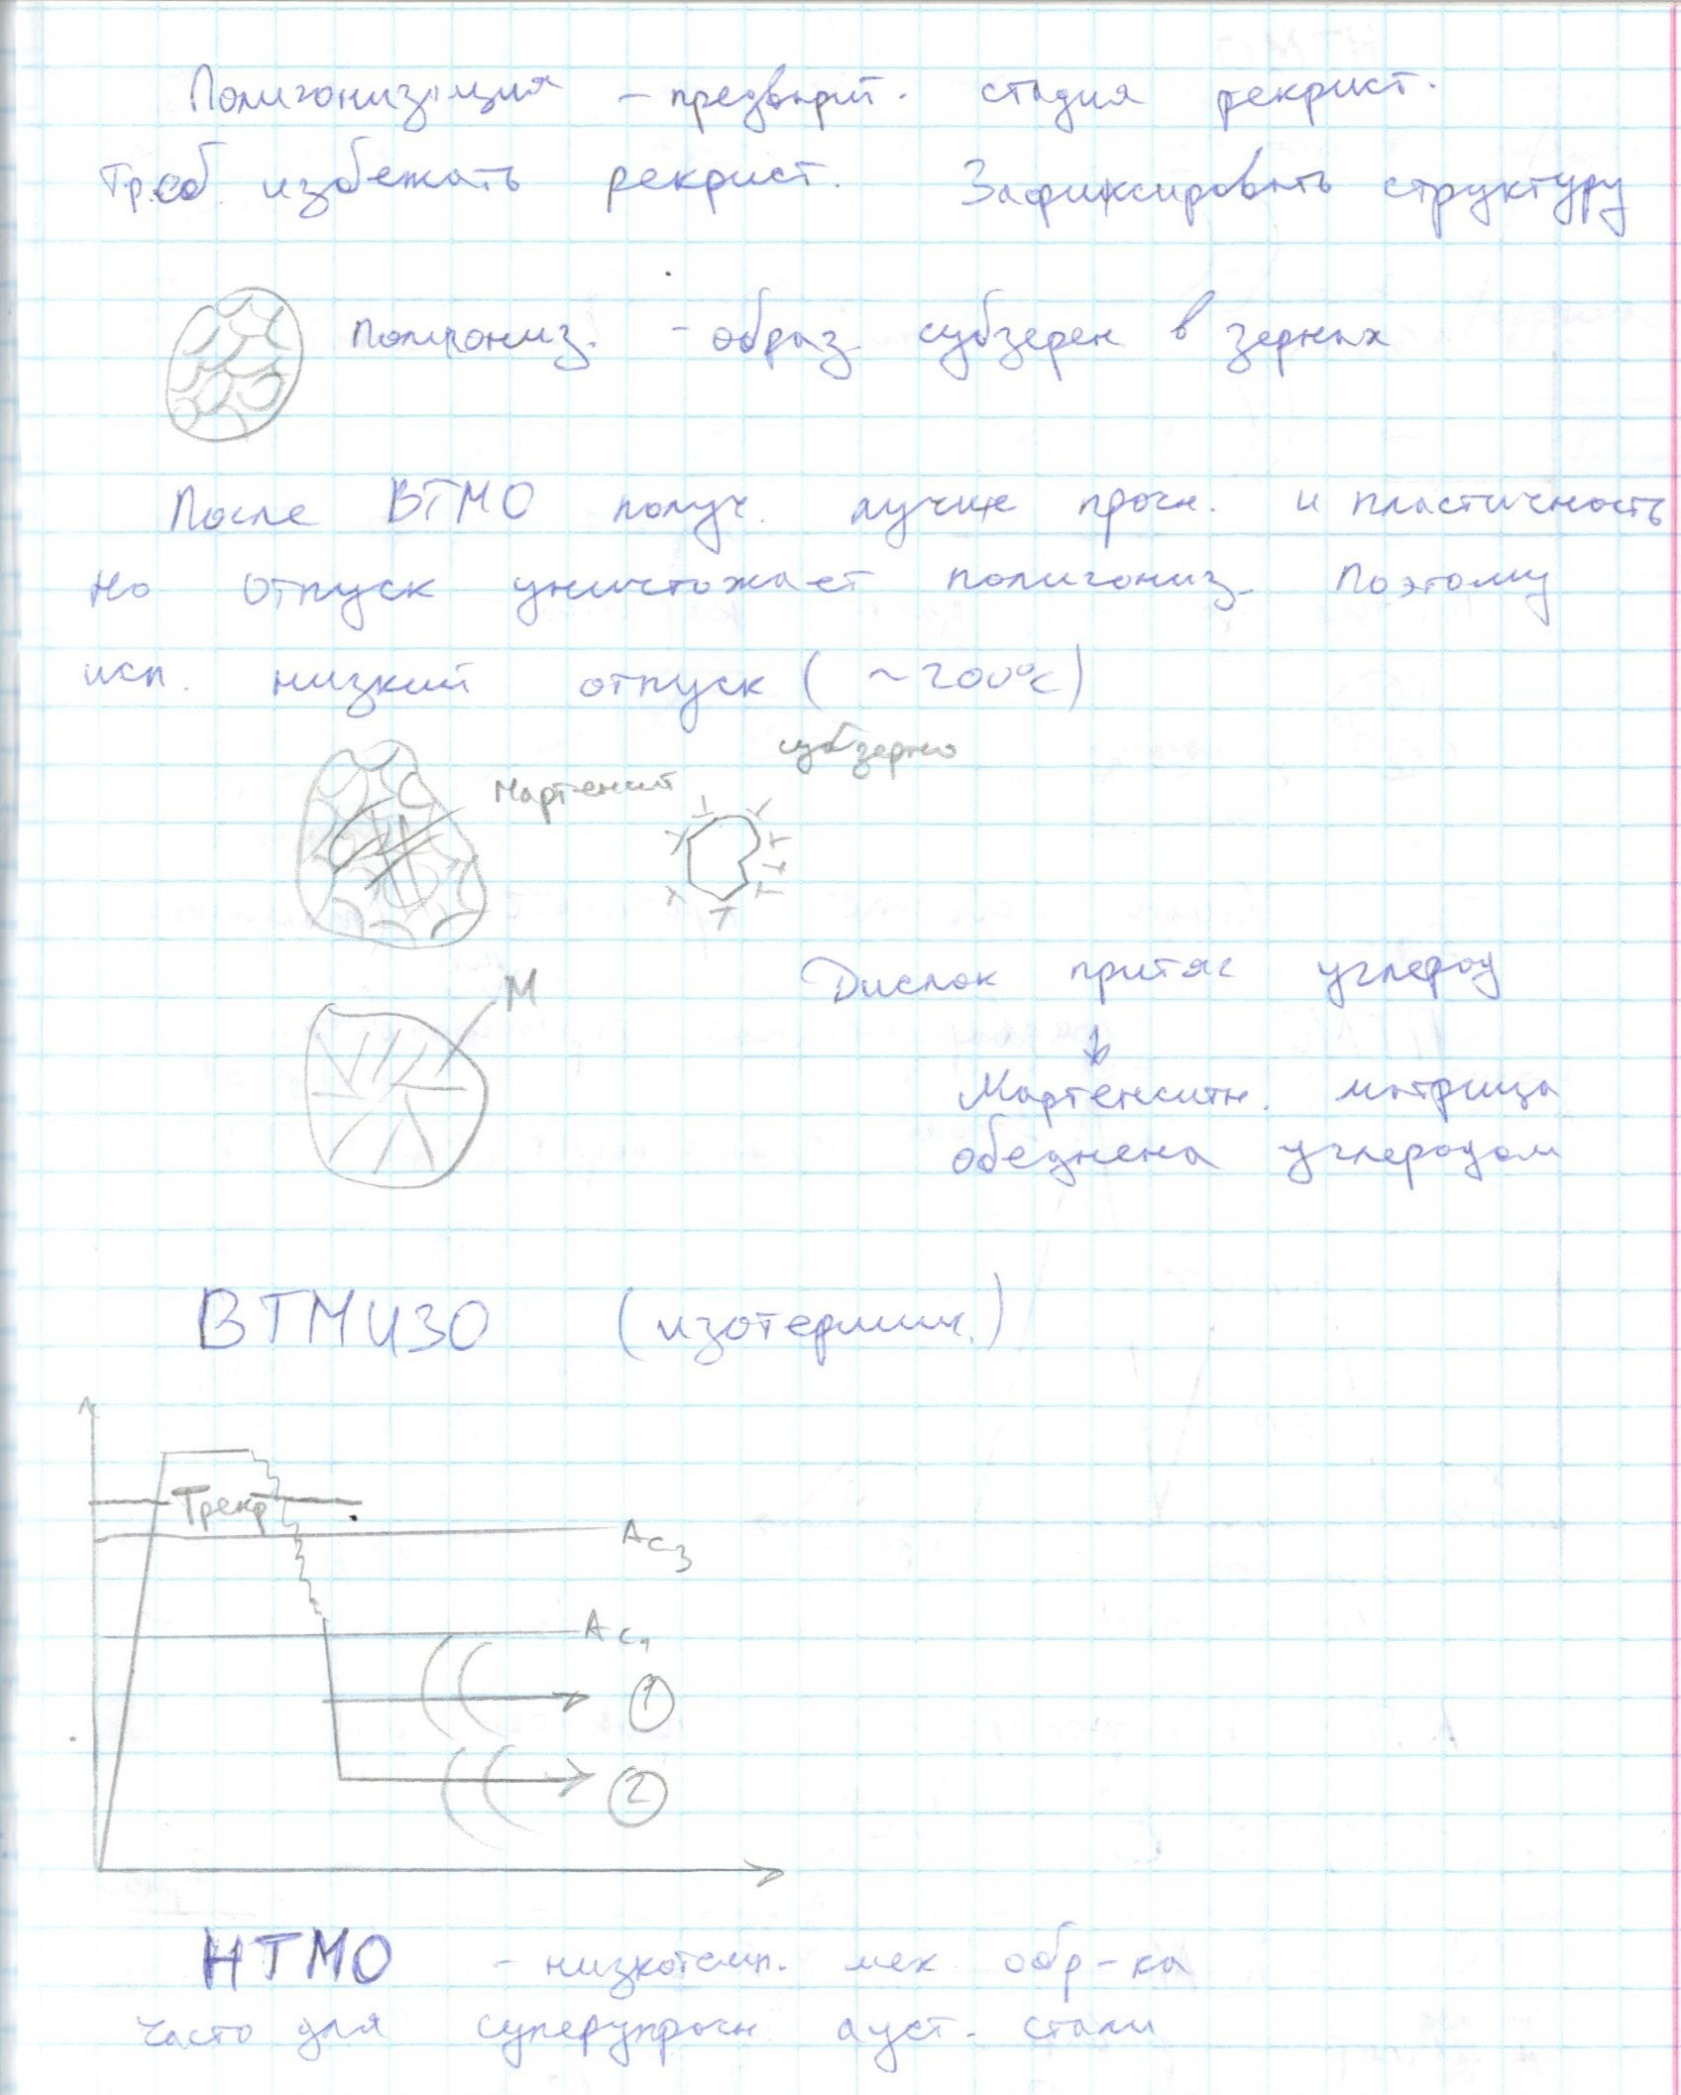 Полигонизация - предварит. стадия рекрист.
Треб. избежать рекрист. Зафиксировать структуру
полигониз. - образ. субзерен в зернах
После ВТМО получ. лучше прочн. и пластичность
но отпуск уничтожает полигониз. Поэтому
исп. низкий отпуск (~200°C)
субзерно
Мартенсит
М
Дислок притяг углерод
Мартенситн. матрица
обеднена углеродом
ВТМИЗО (изотермич.)
Трекр
Ac3
Ac1
1
2
НТМО - низкотемп. мех обр-ка
часто для суперупрочн ауст. стали